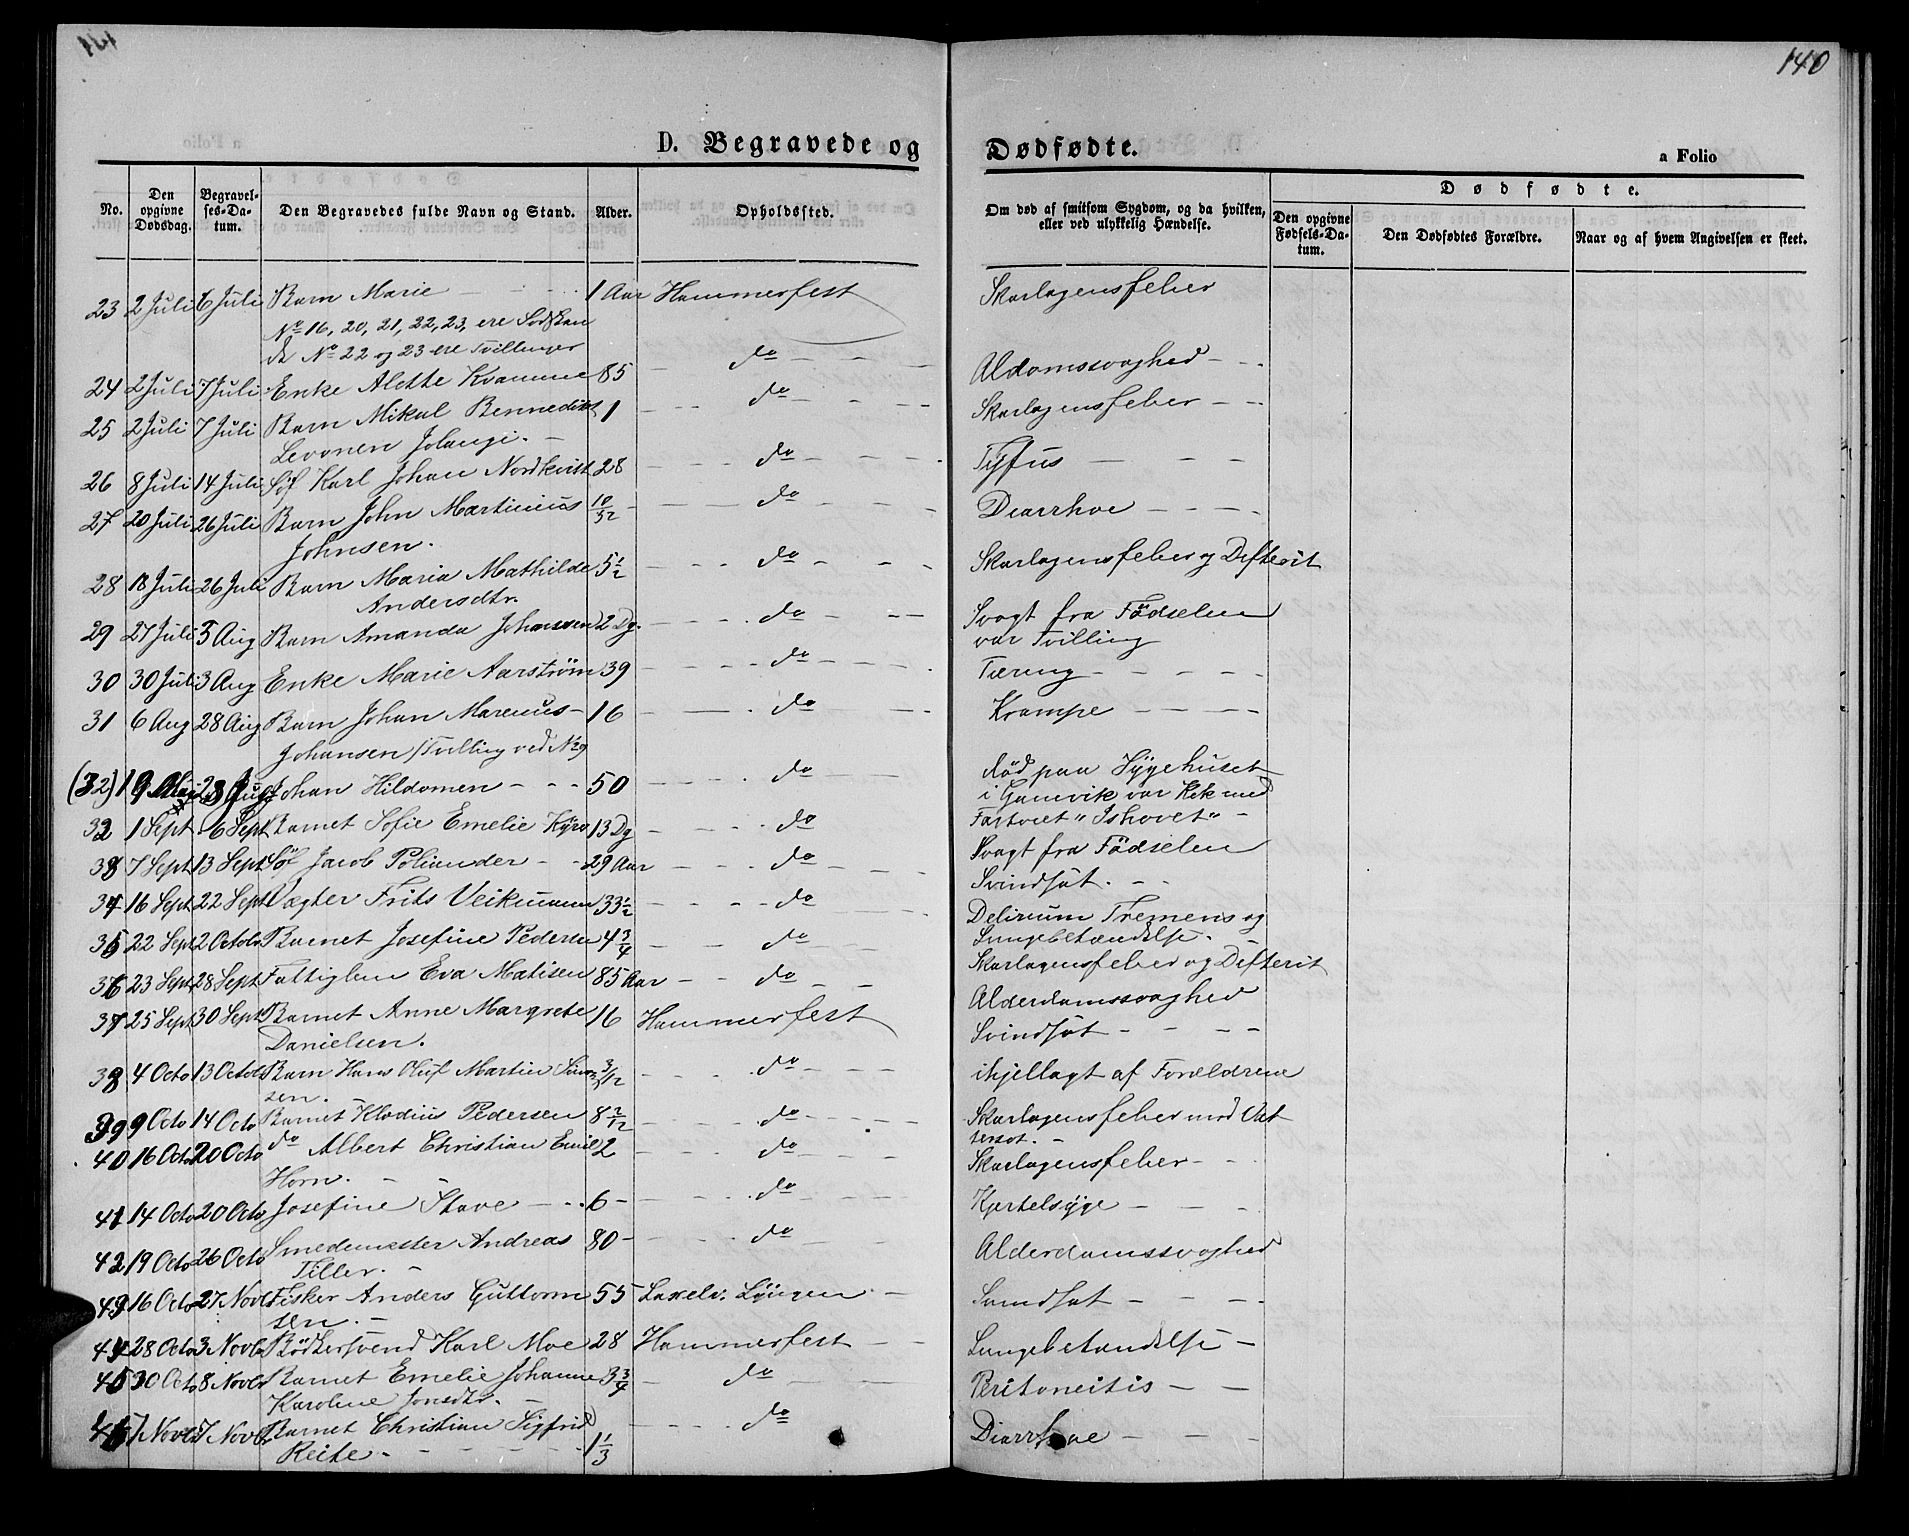 140
D. Begravede og Dødfødte.
a Folio
No.
Den opgivne Dødsdag.
Begravelses-Datum.
Den Begravedes fulde Navn og Stand.
Alder.
Opholdssted.
Om død af smitsom Sygdom, og da hvilken, eller ved ulykkelig Hændelse.
Dødfødte.
Den opgivne Fødsels-Datum.
Den Dødfødtes Forældre.
Naar og af hvem Angivelsen er skeet.
23 2 Juli 6 Juli Barn Marie 1 Aar Hammerfest Skarlagensfeber
No 16, 20, 21, 22, 23, ere Sødsken
de No 22 og 23 ere Tvillinger
24 2 Juli 7 Juli Enke Alette Kvamme 85 do Aldomssvaghed
25 2 Juli 7 Juli Barn Mikal Bennedikt 1 do Skarlagensfeber
Levonen Jolangi.
26 8 Juli 14 Juli Søf Karl Johan Nordkvist 28 do Tyfus
27 20 Juli 26 Juli Barn John Martinius 10/52 do Diarrhoe
Johnsen.
28 18 Juli 26 Juli Barn Maria Mathilde 5 1/2 do Skarlagensfeber og Difterit
Andersdtr.
29 27 Juli 3 Aug Barn Amanda Johansen 2 Dg. do Svagt fra Födselen
var Tvilling
30 30 Juli 3 Aug Enke Marie Aarström 39 do Tæring
31 6 Aug 28 Aug Barn Johan Marenus 16 do Krampe
Johansen (Tvilling ved No 29
(32) 19 23 Johan Hildomen 50 do död paa Sygehuset
i Gamvik var Kok med
Fartøiet "Ishavet"
32 1 Sept. 6 Sept Barnet Sofie Emelie Kyrö 13 Dg do Svagt fra Födselen
33 7 Sept. 13 Sept Søf Jacob Poliander 29 Aar do Svindsöt.
34 16 Sept. 22 Sept Vægter Frits Veikmann 33 1/2 do Delirium Tremens og
Lungebetændelse.
35 22 Sept. 2 Octob Barnet Josefine Pedersen 4 3/4 do Skarlagensfeber og Difterit
36 23 Sept. 28 Sept Fattiglem Eva Matisen 85 Aar do Alderdamssvaghed
37 25 Sept 30 Sept Barnet Anne Margrete 16 Hammerfest Svindsöt
Danielsen.
38 4 Octo 13 Octob Barn Hans Oluf Martin Simon 3/12 do ihjellagt af Forældrene
sen.
39 9 Octo 14 Octo Barnet Klodius Pedersen 8 2/12 do Skarlagensfeber med Vat
tersot.
40 16 Octo 20 Octo do Albert Christian Emil 2 do Skarlagensfeber
Horn.
41 14 Octo 20 Octo Josefine Stave 6 do Kjertelsyge
42 19 Octo 26 Octo Smedemester Andreas 80 do Alderdamssvaghed
Tiller.
43 16 Octo 27 Novb Fisker Anders Guttorm 55 Laxelv. Lyngen Svindsöt
sen.
44 28 Octo 3 Novb Bödkersvend Karl Moe 28 Hammerfest Lungebetændelse
45 30 Octo 8 Novb Barnet Emelie Johanne 3 3/4 do Peritoneitis
Karoline Jonsdtr.
46 7 Novb 7 Novb Barnet Christian Sigfrid 1 1/3 do Diarrhoe
Reite.